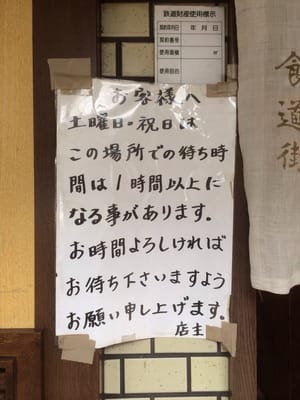 鉄道財産使用標示
契約年月日 年 月 日
契約番号
使用面積 ㎡
使用目的
お客様へ
土曜日・祝日は
この場所での待ち時
間は1時間以上に
なる事があります。
お時間よろしければ
お待ち下さいますよう
お願い申し上げます。
店主
食道街